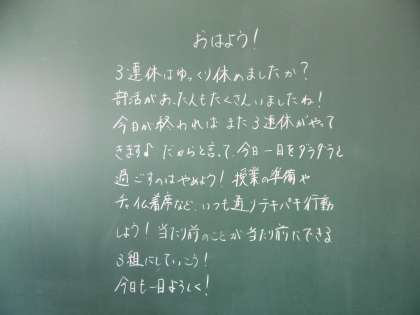 おはよう!
3連休はゆっくり休めましたか?
部活があった人もたくさんいましたね!
今日が終わればまた3連休がやって
きます♪ だからと言って、今日一日をダラダラと
過ごすのはやめよう! 授業の準備や
チャイム着席など、いつも通りテキパキ行動
しよう! 当たり前のことが当たり前にできる
3組にしていこう!
今日も一日よろしく!